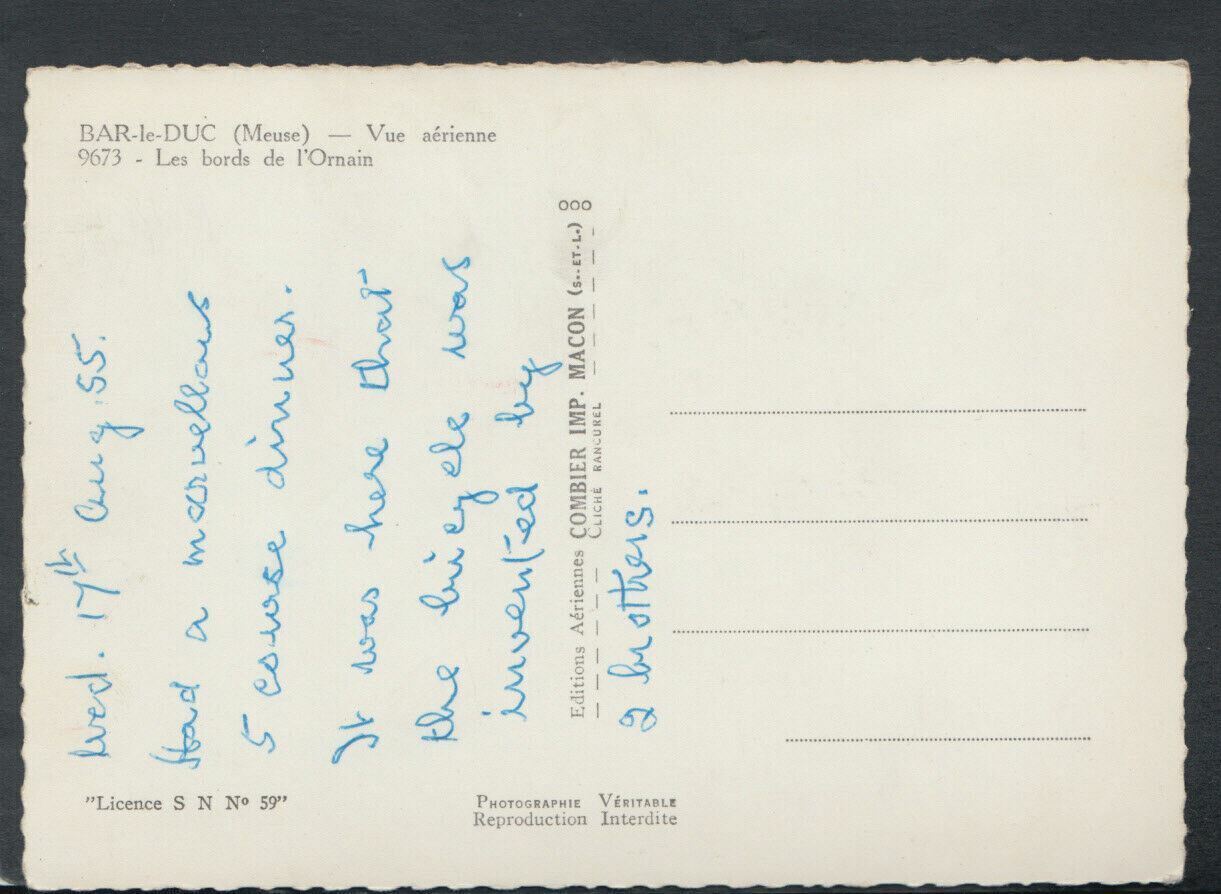 BAR-le-DUC (Meuse) — Vue aérienne
9673 - Les bords de l'Ornain
Wed. 17th Aug. 55.
Had a marvellous
5 course dinner.
It was here that
the bicycle was
invented by
2 brothers.
Editions Aériennes COMBIER IMP. MACON (S.-ET-L.)
CLICHÉ RANCUREL
"Licence S N Nº 59"
PHOTOGRAPHIE VÉRITABLE
Reproduction Interdite